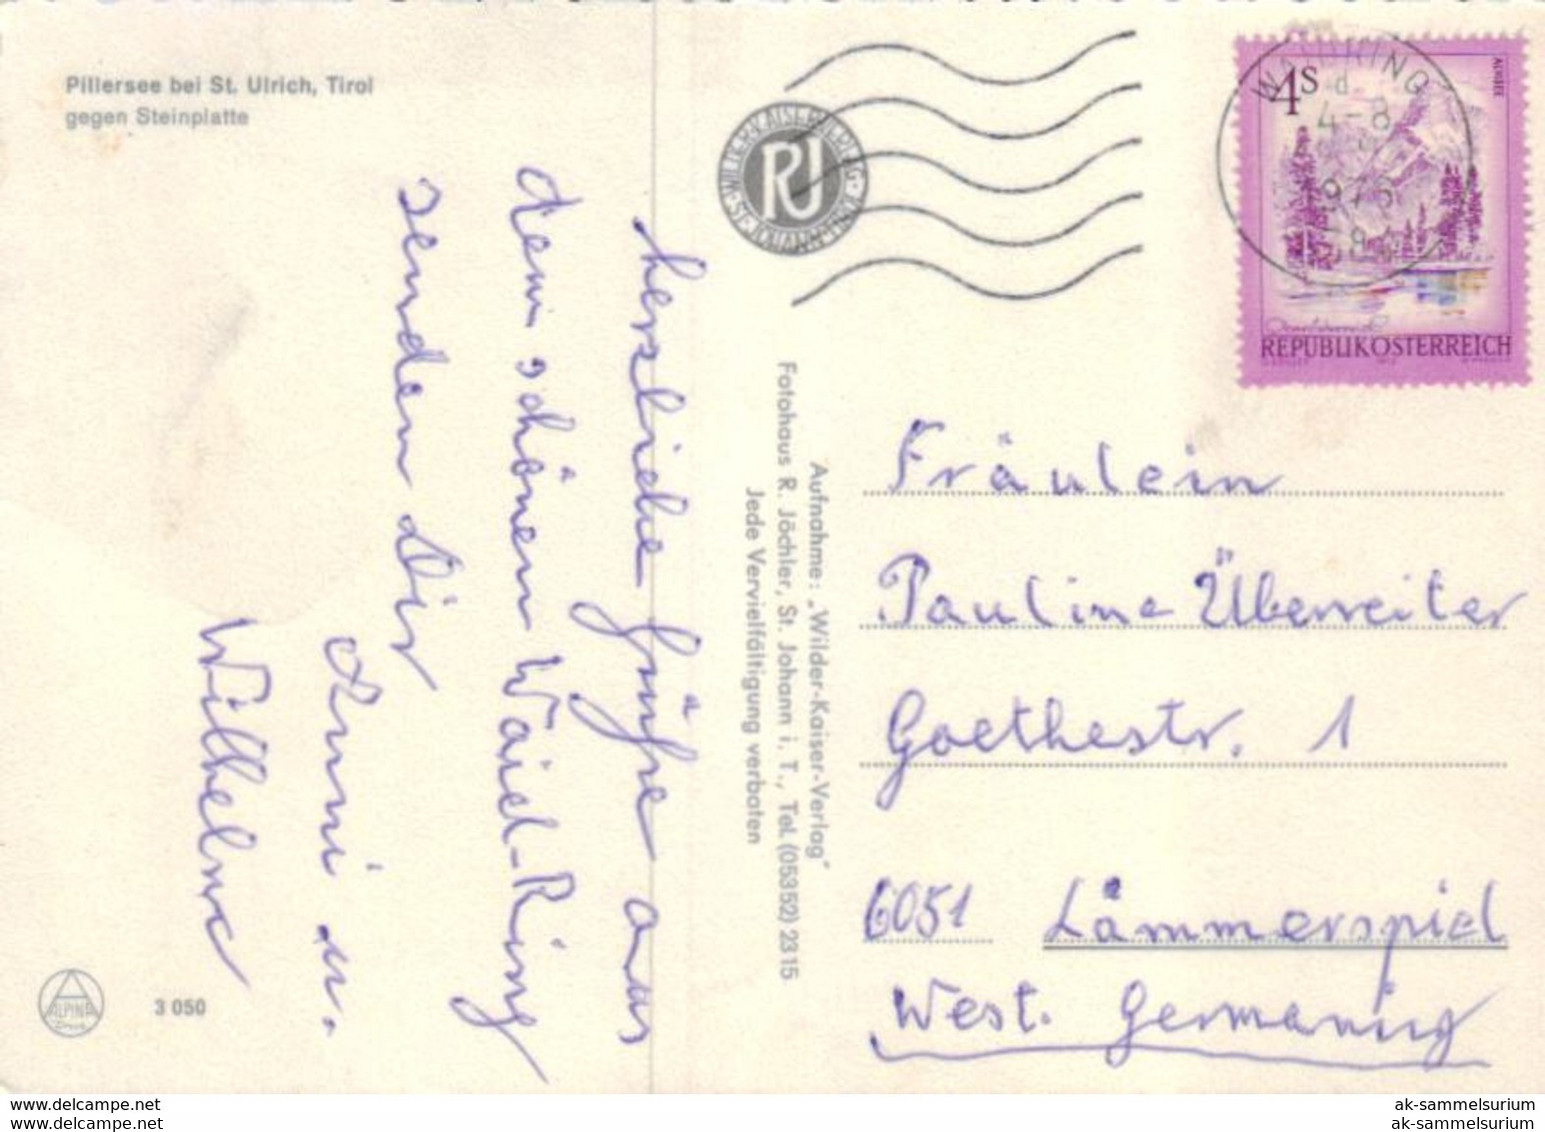 Pillersee bei St. Ulrich, Tirol
gegen Steinplatte
WILDER-KAISER-VERLAG
RJ
ST. JOHANN
herzliche Grüße aus
dem schönen Waid-Ring
senden Dir
Anni u.
Wilhelm
ALPINA
Druck
3 050
Aufnahme: „Wilder-Kaiser-Verlag"
Fotohaus R. Jöchler, St. Johann i. T., Tel. (05352) 2315
Jede Vervielfältigung verboten
WAIDRING
d
4-8
1975
4S
ALMSEE
REPUBLIK ÖSTERREICH
Fräulein
Pauline Überreiter
Goethestr. 1
6051 Lämmerspiel
West. Germaniy
www.delcampe.net
www.delcampe.net
ak-sammelsurium
ak-sammelsurium